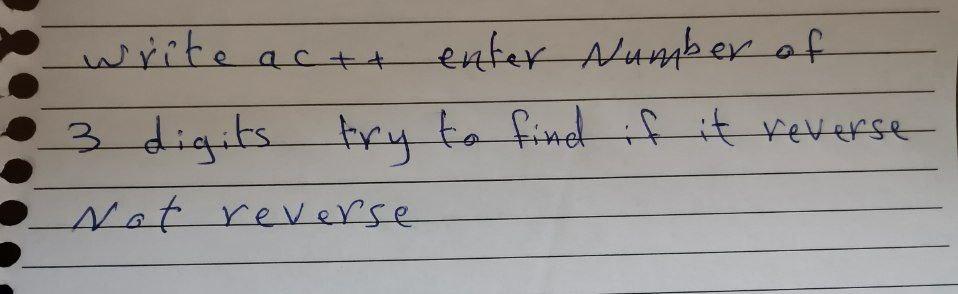 write a c++ enter Number of
3 digits try to find if it reverse
Not reverse